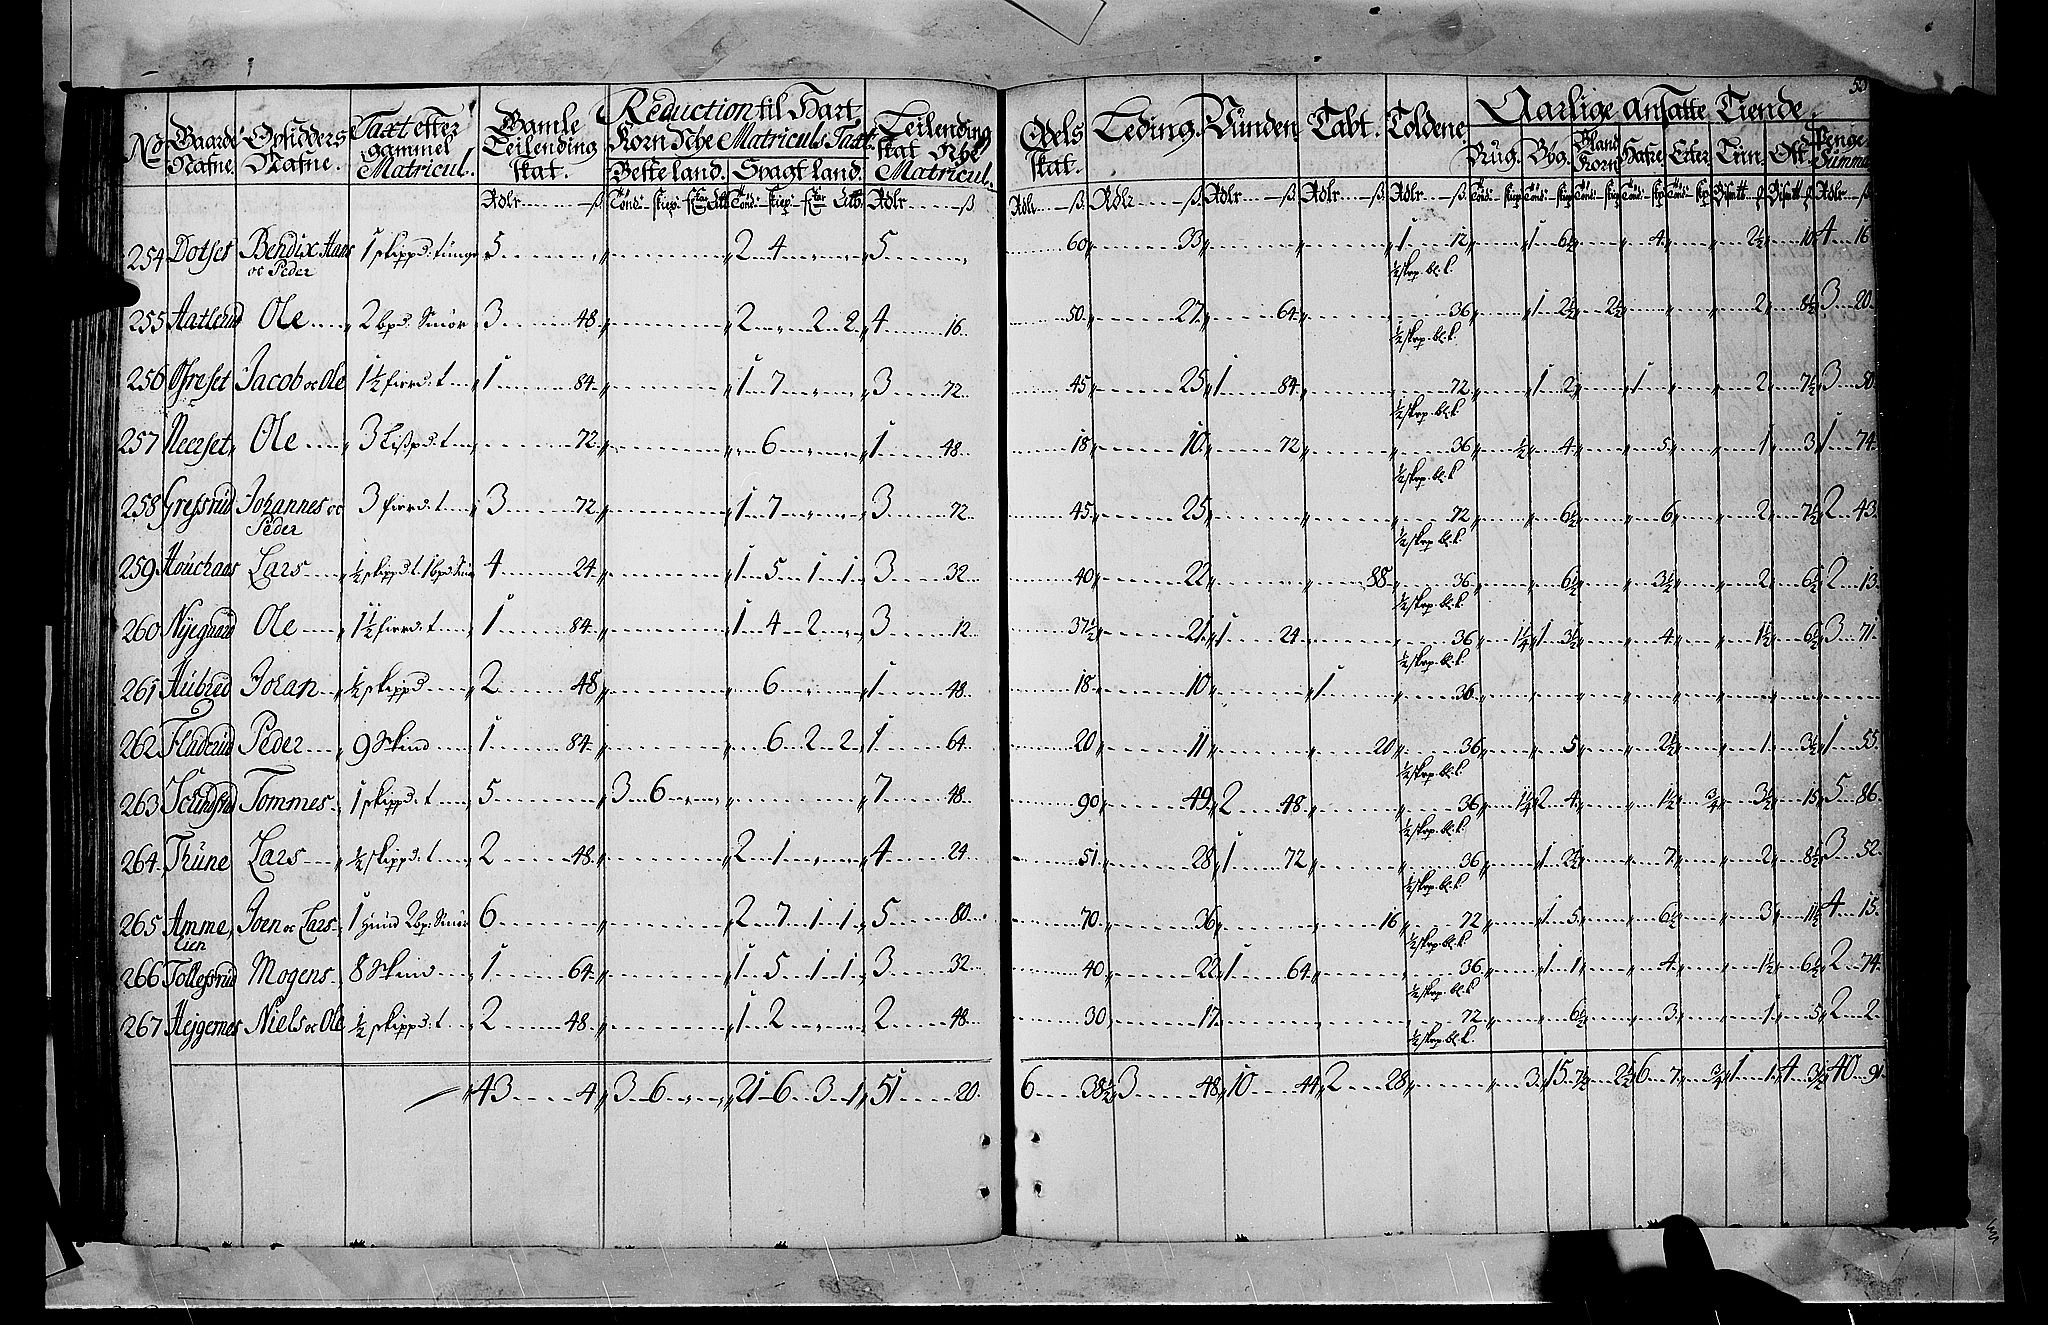 50
No Gaarde Nafne. Opsidders Nafne. Taxt efter gammel Matricul. Gamle Leilending skat. Reduction til Hart Korn Nye Matriculs Taxt. Leilending skat Nye Matricul. Odels skat. Leding. Vunden Tabt. Toldene Aarlige ansatte Tiende
Besteland. Svagt land. Rug. Byg. Bland Korn Hafre Erter Tiin Ost. Penge Summa
254 Dotset Bendix Hans 1 skippd: tunge 5 2 4 5 60 33 1 12 1 6½ 4 2½ 10 4 16
oc Peder ½ skrp. bl. k.
255 Aatlerud Ole 2 bpd Smör 3 48 2 2 2 4 16 50 27 64 36 1 2½ 2½ 2 8½ 3 20
½ skrp. bl. k.
256 Ofreset Jacob oc Ole 1½ fierd: t 1 84 1 7 3 72 45 25 1 84 72 1 2 1 2 7½ 3 50
½ skrp. bl. k
257 Neerset Ole 3 Lispd: t 72 6 1 48 18 10 72 36 ½ 4 5 1 3 1 74
½ skrp. bl. k
258 Grefsrud Johannes oc 3 fierd: t 3 72 1 7 3 72 45 25 72 6½ 6 2 7½ 2 43
Peder ½ skrp bl. k.
259 Houchaas Lars ½ skippd t. 1 bpd Smör 4 24 1 5 1 1 3 32 40 22 88 36 6½ 3½ 2 6½ 2 13
½ skrp. bl. k.
260 Nyegaard Ole 1½ fierd: t 1 84 1 4 2 3 12 37½ 21 1 24 36 1¼ 1 3½ 4 1½ 6½ 3 71
½ skrp. bl. k.
261 Aubred Johan ½ skippd 2 48 6 1 48 18 10 1 36
262 Fladerud Peder 9 Skind 1 84 6 2 2 1 64 20 11 20 36 5 2½ 1 3½ 1 55
½ skrp. bl. k.
263 Tommes 1 skippd: t 5 3 6 7 48 90 49 2 48 36 1¼ 2 4 1½ ¾ 3½ 15 5 86
½ skrp. bl. k.
264 Thune Lars ½ skippd: t 2 48 2 1 4 24 51 28 1 72 36 1 2½ 7 2 8½ 3 52
½ skrp. bl. k.
265 Amme, Joen oc Lars 1 Hund 2 bp: Smör 6 2 7 1 1 5 80 70 36 16 72 1 5 6½ 3 11½ 4 15
lien ½ skrp. bl. k
266 Tollefsrud Mogens 8 Skind 1 64 1 5 1 1 3 32 40 22 1 64 36 1 1 4 1½ 6½ 2 74
½ skrp. bl. k
267 Hejgernes Niels oc Ole ½ skippd: t 2 48 1 2 2 48 30 17 72 6½ 3 1 5 2 2
½ skrp. bl. k.
43 4 3 6 21 6 3 1 51 20 6 38½ 3 48 10 44 2 28 3 15 7½ 2½ 6 7 ¾ 1 1 4 3½ 40 91